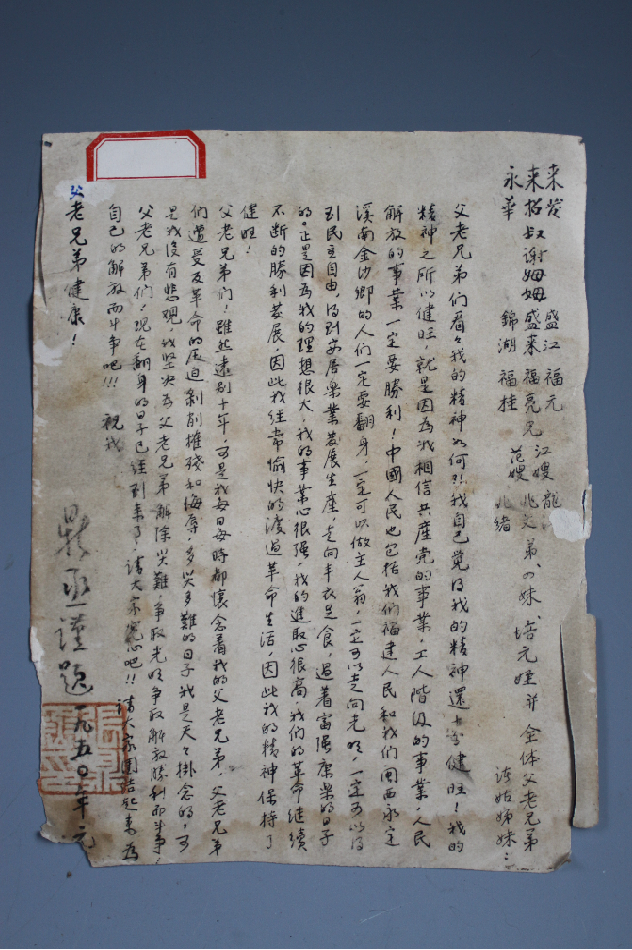 来发 盛江 福元
来招叔谢姆姆盛来福亮兄 江嫂 龍
永华 錦湖 福桂 范嫂 兆文弟、四妹、培元姪并全体父老兄弟
兆緒 诸姑姊妹：
父老兄弟们看々我的精神如何？！我自己觉得我的精神还十分健旺！我的
精神之所以健旺，就是因為我相信共産党的事業，工人階級的事業，人民
解放的事業一定要勝利！中國人民也包括我们福建人民和我们閩西永定
溪南金沙鄉的人们一定要翻身，一定可以做主人翁，一定可以走向光明，一定可以得
到民主自由，得到安居樂業發展生産，走向丰衣足食，过着富强康樂的日子
的。正是因為我的理想很大，我的事業心很强，我的進取心很高，我们的革命继续
不断的勝利發展，因此我经常愉快的渡過革命生活，因此我的精神保持了
健旺！
父老兄弟们！雖然遠别十年，可是我每日每時都懷念着我的父老兄弟，父老兄弟
们遭受反革命的压迫剥削摧殘和侮辱，多災多難的日子我是天々掛念的，可
是我没有悲观，我坚决為父老兄弟解除災難，争取光明争取解放勝利而斗争，
父老兄弟们，现在翻身的日子已经到来了，请大家宽心吧！！请大家團结起来為
自己的解放而斗争吧！！！ 祝我
父老兄弟健康！
鼎丞謹題 一九五〇年元